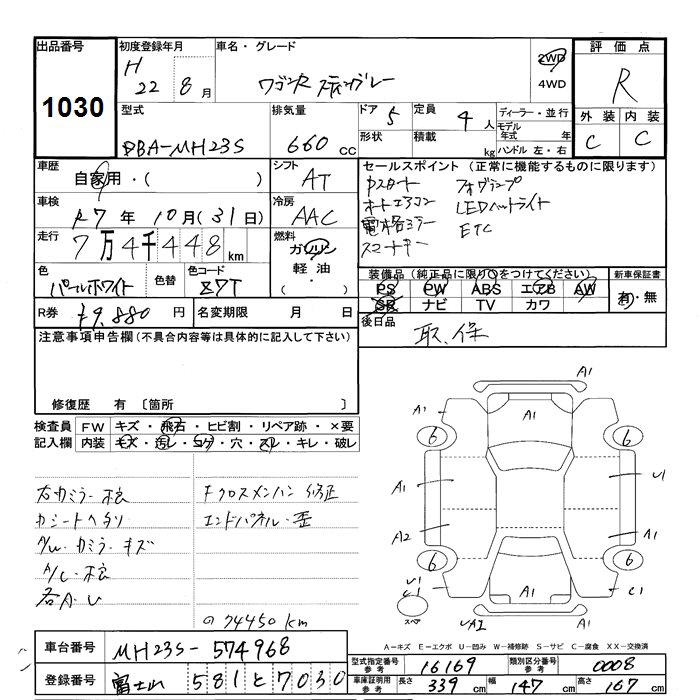 出品番号
1030
初度登録年月
H
22年8月
車名・グレード
ワゴンR スティングレー
2WD
4WD
評価点
R
型式
DBA-MH23S
排気量
660cc
ドア
5
形状
定員
4人
積載
kg
ディーラー・並行
モデル年式 年
ハンドル 左・右
外装 内装
C C
車歴
自家用・( )
シフト
AT
車検
R7年10月(31日)
冷房
AAC
走行
7万4千448km
燃料
ガソリン
軽油・
( )
色
パールホワイト
色替
色コード
Z7T
R券
¥9,880円
名変期限 月 日
セールスポイント(正常に機能するものに限ります)
Pスタート フォグランプ
オートエアコン LEDヘッドライト
電格ミラー ETC
スマートキー
装備品(純正品に限り○をつけてください)
新車保証書
PS PW ABS エアB AW
SR ナビ TV カワ
有・無
後日品
取、保
注意事項申告欄(不具合内容等は具体的に記入して下さい)
修復歴 有〔箇所 〕
検査員
記入欄
FW キズ・飛石・ヒビ割・リペア跡・×要
内装 キズ・汚レ・コゲ・穴・スレ・キレ・破レ
右カミラー
カシートヘタリ
A/W・カミラー・キズ
各A・U
Fクロスメンバー修正
エンドパネル・歪
74450km
A1
A1
A1
A1
A1
6
6
A1
U1
A2
A1
6
6
U1
C1
A1
C1
スペア
A1
UA2
A=キズ E=エクボ U=凹み W=補修跡 S=サビ C=腐食 XX=交換済
車台番号
MH23S-574968
登録番号
富士山 581と7030
型式指定番号
参考
16169
類別区分番号
参考
0008
車庫証明用
参考
長さ
339cm
幅
147cm
高さ
167cm